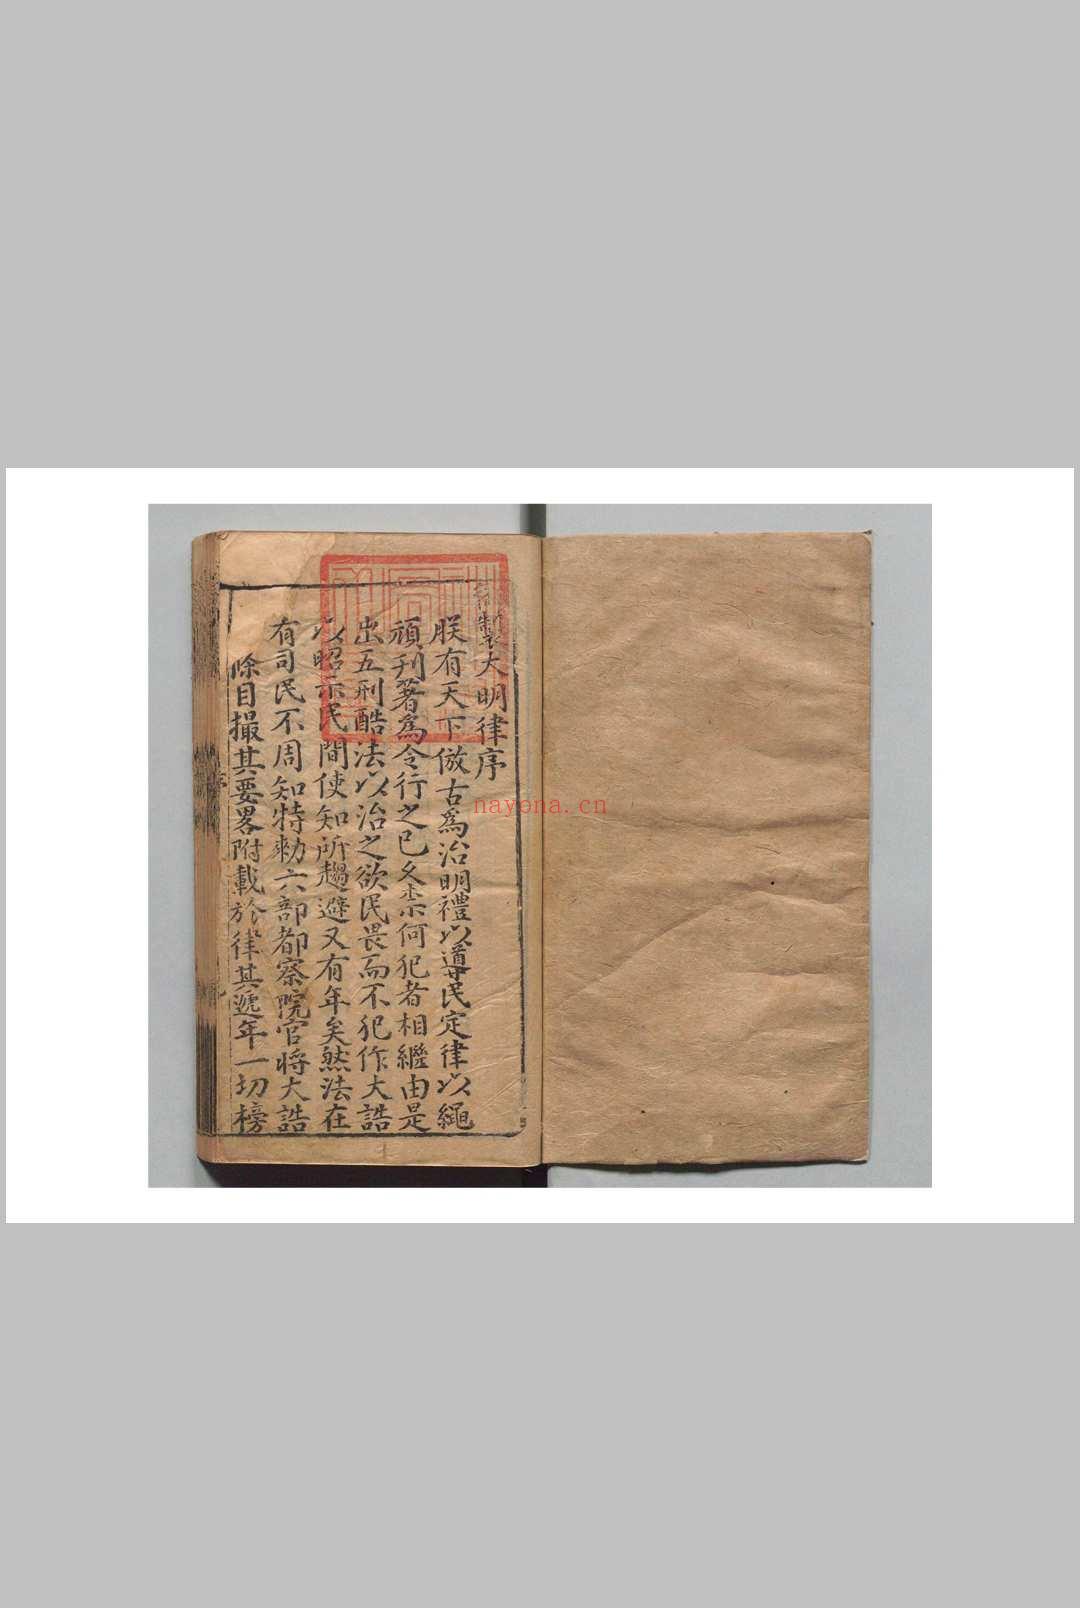 御製大明律序
朕有天下倣古爲治明禮以導民定律以繩
頑刋著爲令行之已久柰何犯者相繼由是
出五刑酷法以治之欲民畏而不犯作大誥
以昭示民間使知所趨避又有年矣然法在
有司民不周知特勑六部都察院官将大誥
條目撮其要畧附載於律其遞年一切榜
nayona.cn